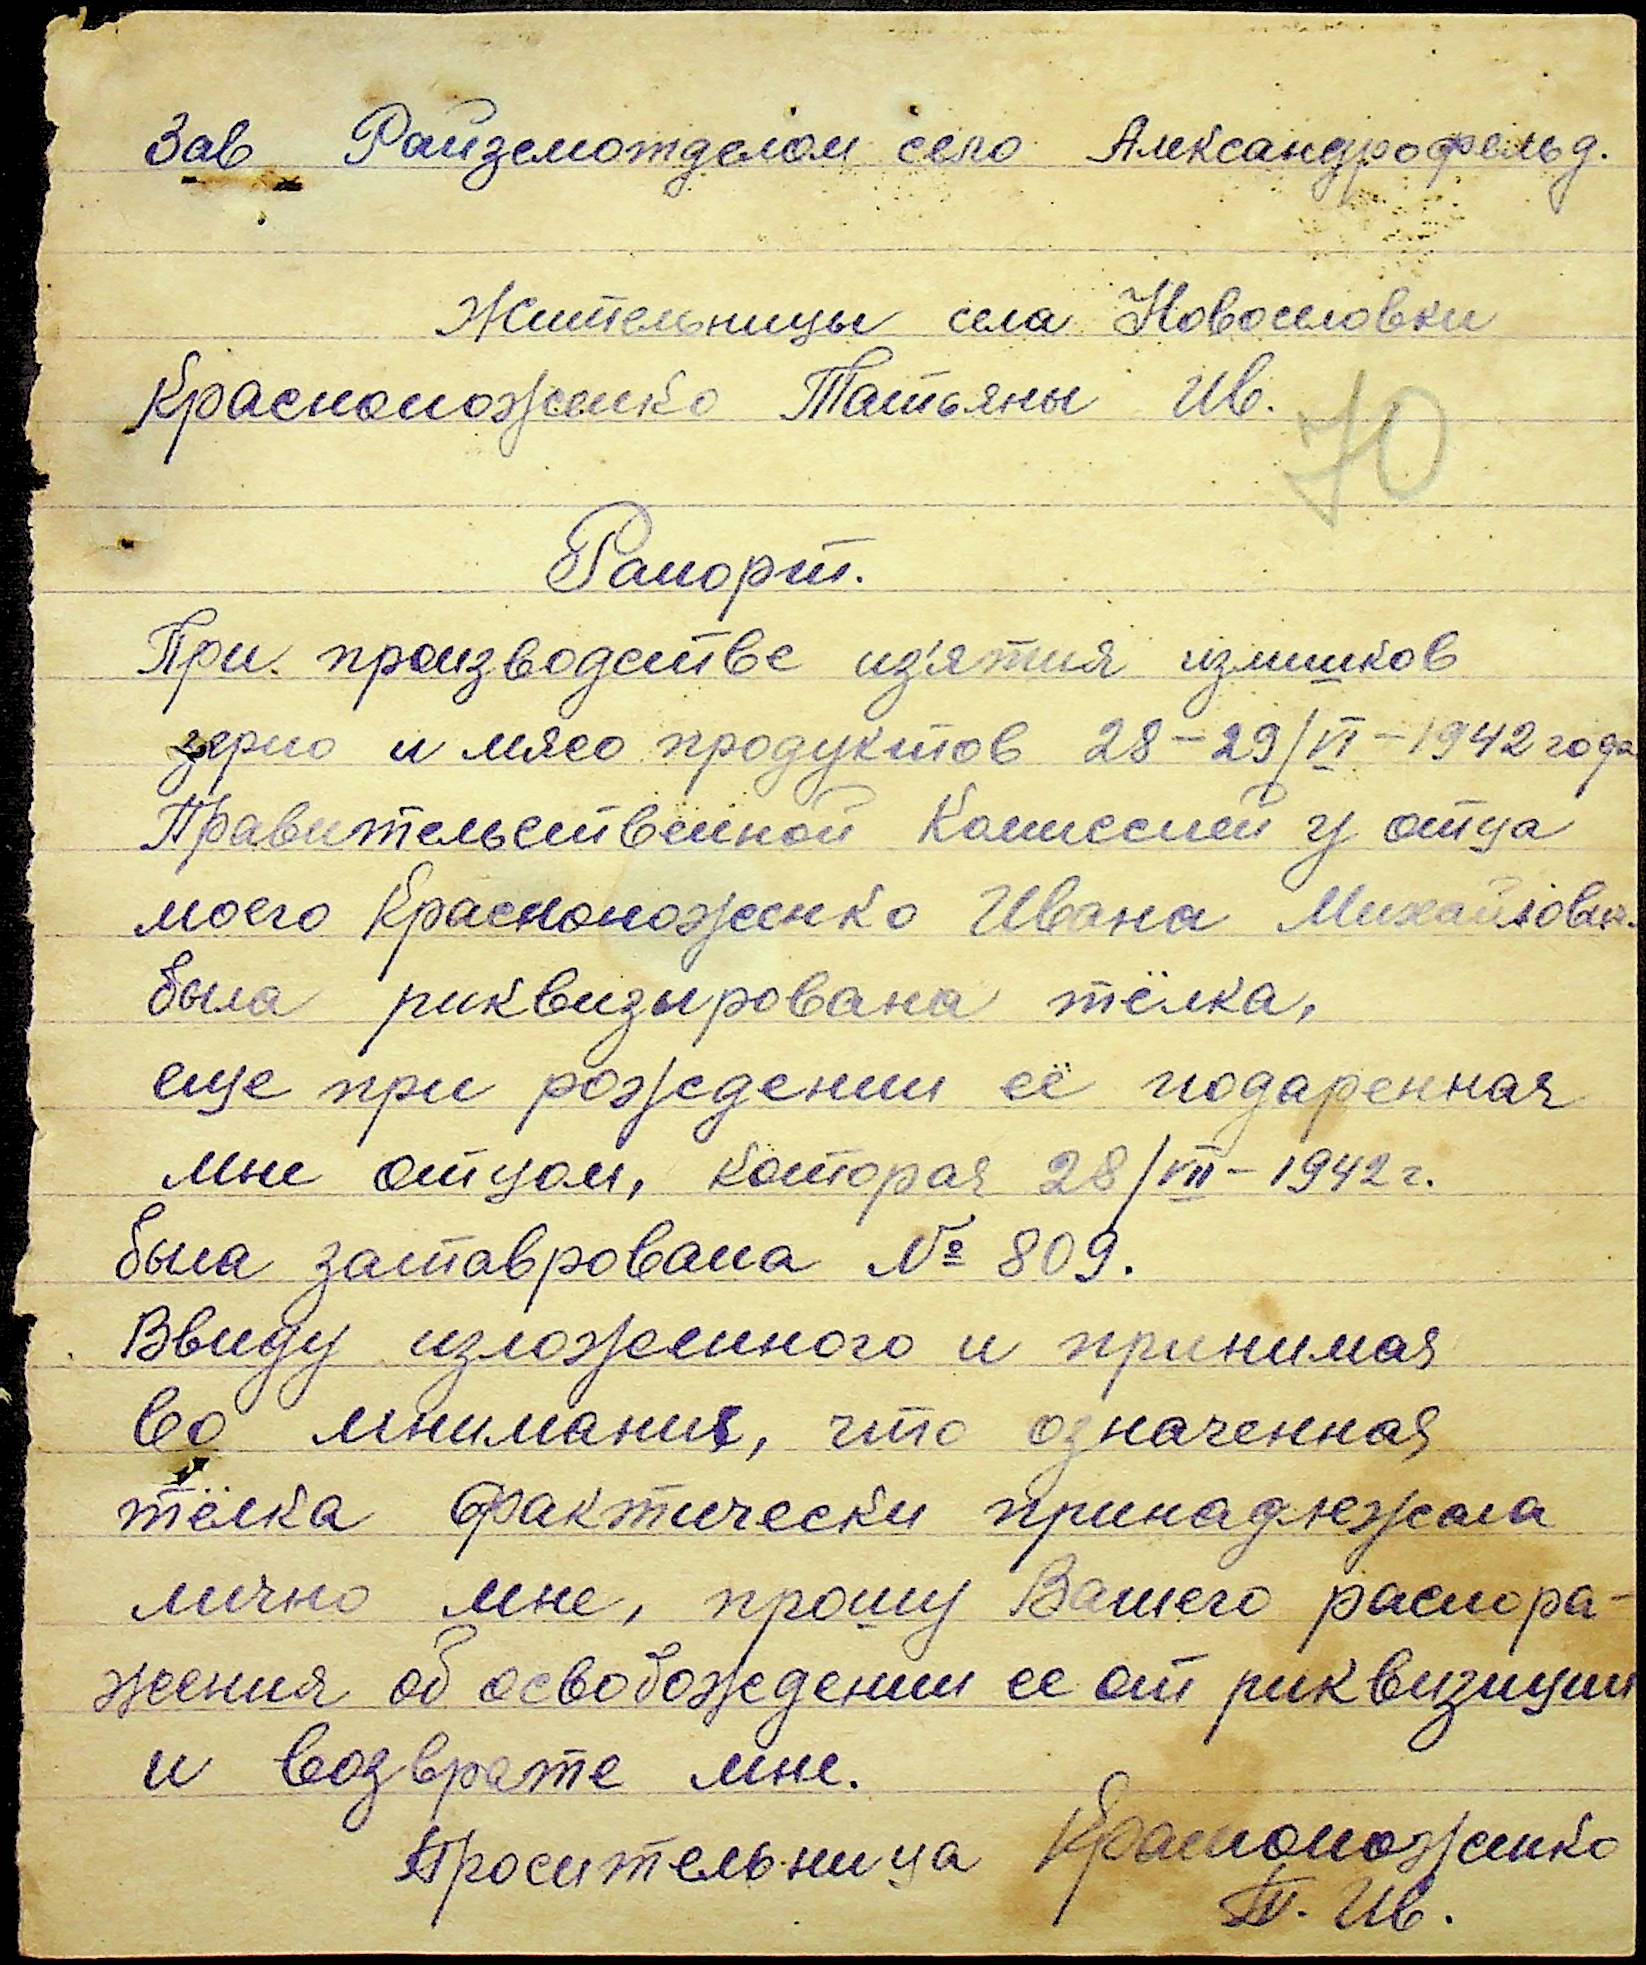 Зав Райземотделом село Александрофельд.
Жительницы села Новоселовки
Красноноженко Татьяны Ив.
70
Рапорт.
При производстве из'ятия излишков
зерно и мясо продуктов 28-29/VI-1942 года
Правительственной Комиссией у отца
моего Красноноженко Ивана Михайлович.
была риквизырована тёлка,
еще при рождении её подаренная
мне отцом, которая 28/VII-1942 г.
была затаврована № 809.
Ввиду изложенного и принимая
во мнимание, что означенная
тёлка фактически принадлежала
лично мне, прошу Вашего распора-
жения об освобождении ее от риквизиции
и возврате мне.
Просительница Красноноженко
Т. Ив.